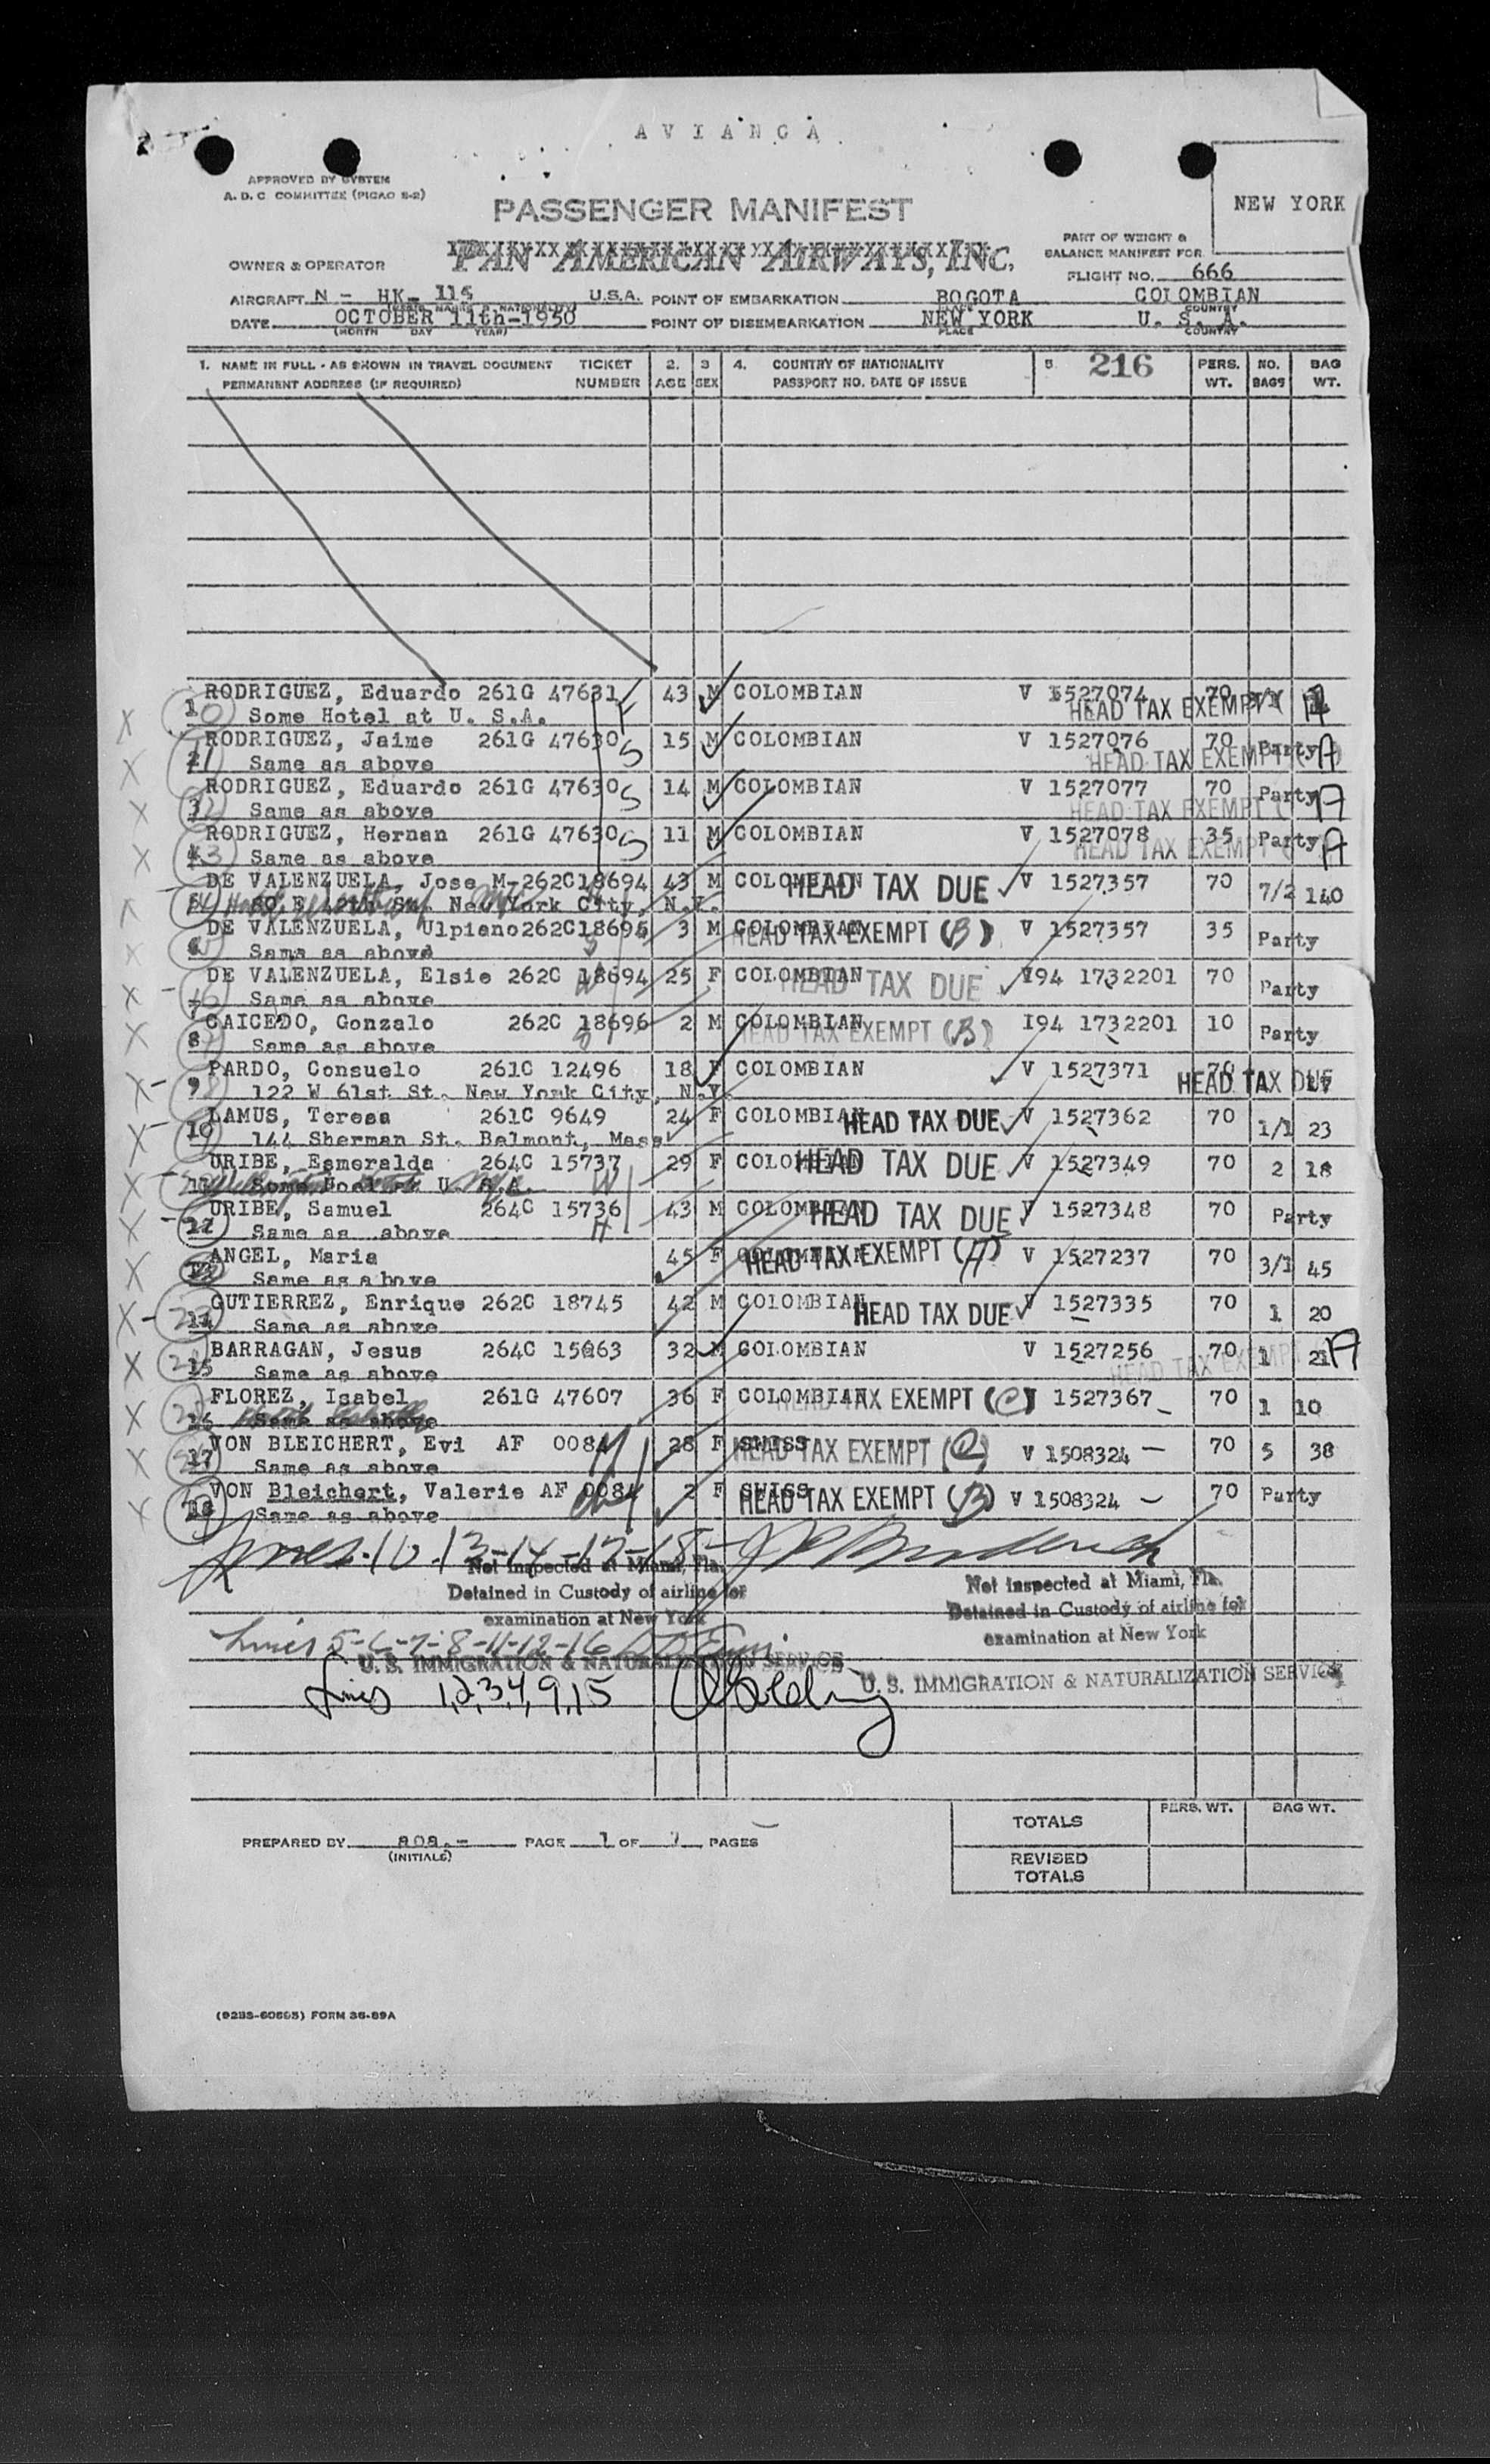 AVIANCA
APPROVED BY SYSTEM
A. D. C COMMITTEE (PICAO S-2)
PASSENGER MANIFEST
NEW YORK
PAN AMERICAN AIRWAYS, INC.
PART OF WEIGHT &
BALANCE MANIFEST FOR
OWNER & OPERATOR
FLIGHT NO. 666
AIRCRAFT N - HK- 115 U.S.A. POINT OF EMBARKATION BOGOTA COLOMBIAN
PLACE COUNTRY
DATE OCTOBER 11th-1950 POINT OF DISEMBARKATION NEW YORK U. S. A.
(MONTH DAY YEAR) PLACE COUNTRY
1. NAME IN FULL - AS SHOWN IN TRAVEL DOCUMENT TICKET 2. 3 4. COUNTRY OF NATIONALITY 5 216 PERS. NO. BAG
PERMANENT ADDRESS (IF REQUIRED) NUMBER AGE SEX PASSPORT NO. DATE OF ISSUE WT. BAGS WT.
RODRIGUEZ, Eduardo 261G 47631 F 43 M COLOMBIAN V 1527074 70
1 Some Hotel at U. S.A. HEAD TAX EXEMPT A
RODRIGUEZ, Jaime 261G 47630 S 15 M COLOMBIAN V 1527076 70 Party A
2 Same as above HEAD TAX EXEMPT
RODRIGUEZ, Eduardo 261G 47630 S 14 M COLOMBIAN V 1527077 70 Party A
3 Same as above HEAD TAX EXEMPT
RODRIGUEZ, Hernan 261G 47630 S 11 M COLOMBIAN V 1527078 35 Party A
4 Same as above HEAD TAX EXEMPT
DE VALENZUELA, Jose M-262C18694 43 M COLOMBIAN HEAD TAX DUE V 1527357 70 7/2 140
5 New York City, N.Y.
DE VALENZUELA, Ulpiano262C18695 3 M COLOMBIAN HEAD TAX EXEMPT (B) V 1527357 35 Party
6 Same as above
DE VALENZUELA, Elsie 262C 18694 25 F COLOMBIAN HEAD TAX DUE I94 1732201 70 Party
7 Same as above
CAICEDO, Gonzalo 262C 18696 2 M COLOMBIAN HEAD TAX EXEMPT (B) I94 1732201 10 Party
8 Same as above
PARDO, Consuelo 261C 12496 18 F COLOMBIAN V 1527371 70 HEAD TAX DUE
9 122 W 61st St. New York City, N.Y.
LAMUS, Teresa 261C 9649 24 F COLOMBIAN HEAD TAX DUE V 1527362 70 1/1 23
10 144 Sherman St. Belmont, Mass
URIBE, Esmeralda 264C 15737 W 29 F COLOMBIAN HEAD TAX DUE V 1527349 70 2 18
11 Some Hotel at U. S.A.
URIBE, Samuel 264C 15736 H 43 M COLOMBIAN HEAD TAX DUE V 1527348 70 Party
12 Same as above
ANGEL, Maria 45 F COLOMBIAN HEAD TAX EXEMPT (A) V 1527237 70 3/1 45
13 Same as above
GUTIERREZ, Enrique 262C 18745 42 M COLOMBIAN HEAD TAX DUE V 1527335 70 1 20
14 Same as above
BARRAGAN, Jesus 264C 15863 32 M COLOMBIAN V 1527256 70 1 21 A
15 Same as above HEAD TAX EXEMPT
FLOREZ, Isabel 261G 47607 36 F COLOMBIAN HEAD TAX EXEMPT (C) V 1527367 70 1 10
16 Same as above
VON BLEICHERT, Evi AF 0084 M 28 F SWISS HEAD TAX EXEMPT (C) V 1508324 70 5 38
17 Same as above
VON Bleichert, Valerie AF 0084 2 F SWISS HEAD TAX EXEMPT (B) V 1508324 70 Party
18 Same as above
Lines 10-13-14-17-18-
Not Inspected at Miami, Fla. Not Inspected at Miami, Fla.
Detained in Custody of airline for Detained in Custody of airline for
examination at New York examination at New York
Lines 5-6-7-8-11-12-16
U. S. IMMIGRATION & NATURALIZATION SERVICE U. S. IMMIGRATION & NATURALIZATION SERVICE
Lines 1,2,3,4,9,15
PERS. WT. BAG WT.
TOTALS
PREPARED BY aoa.- PAGE 1 OF 1 PAGES
(INITIALS)
REVISED
TOTALS
(92BS-60665) FORM 36-89A